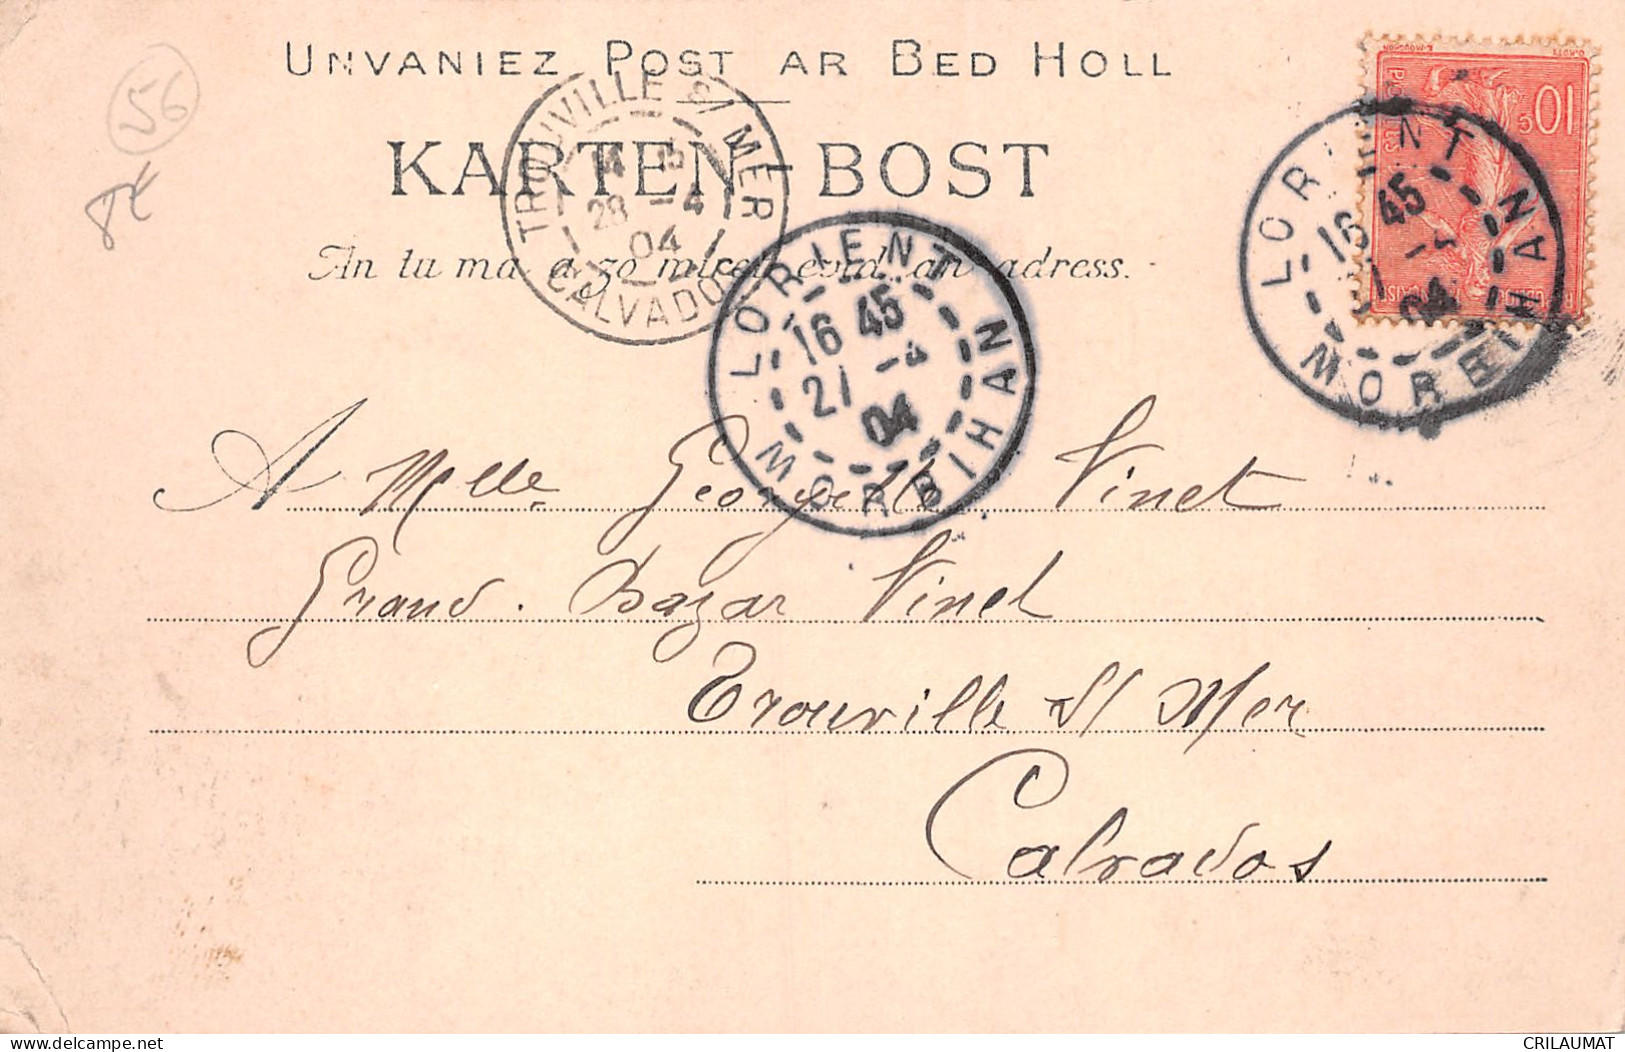 UNVANIEZ POST AR BED HOLL
KARTEN-BOST
An tu ma a zo miret evid an adress.
56
8€
TROUVILLE S/ MER
28 -4
04
CALVADOS
LORIENT
16 45
21 -4
04
MORBIHAN
LORIENT
16 45
04
MORBIHAN
10 c
A Melle Georgette Vinet
Grand Bazar Vinet
Trouville S/ Mer
Calvados
CRILAUMAT